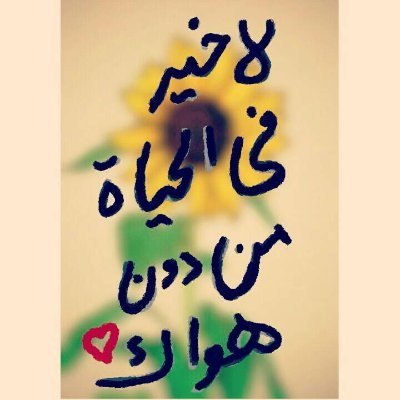 لا خير
في الحياة
من دون
هواك